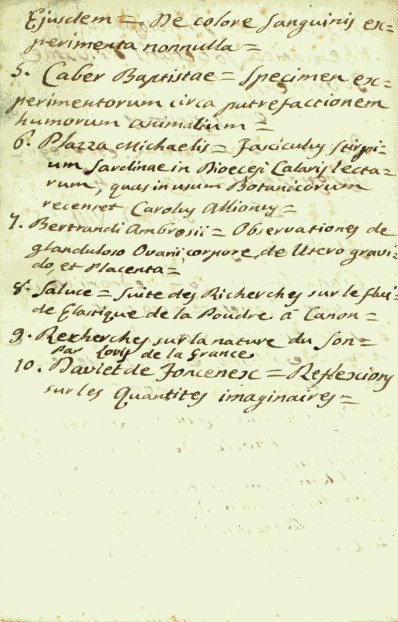 Ejusdem = De colore sanguinis ex=
perimenta nonnulla =
5. Caber Baptistae = Specimen ex=
perimentorum circa putrefactionem
humorum animalium =
6. Plazza Michaelis = Fasciculus Stirpi=
um Sardinae in Dioecesi Calaris lecta=
rum, quas in usum Botanicorum
recenset Carolus Allionus =
7. Bertrandi Ambrosii = Observationes de
glanduloso Ovarii corpore, de Utero gravi=
do, et Placenta =
8. Saluce = Suite des Richerches sur le flui=
de Elastique de la Poudre à Canon =
9. Recherches sur la nature du Son =
Par Louis de la Grance
10. Daviet de Foncenex = Reflexions
sur les Quantites imaginaires =